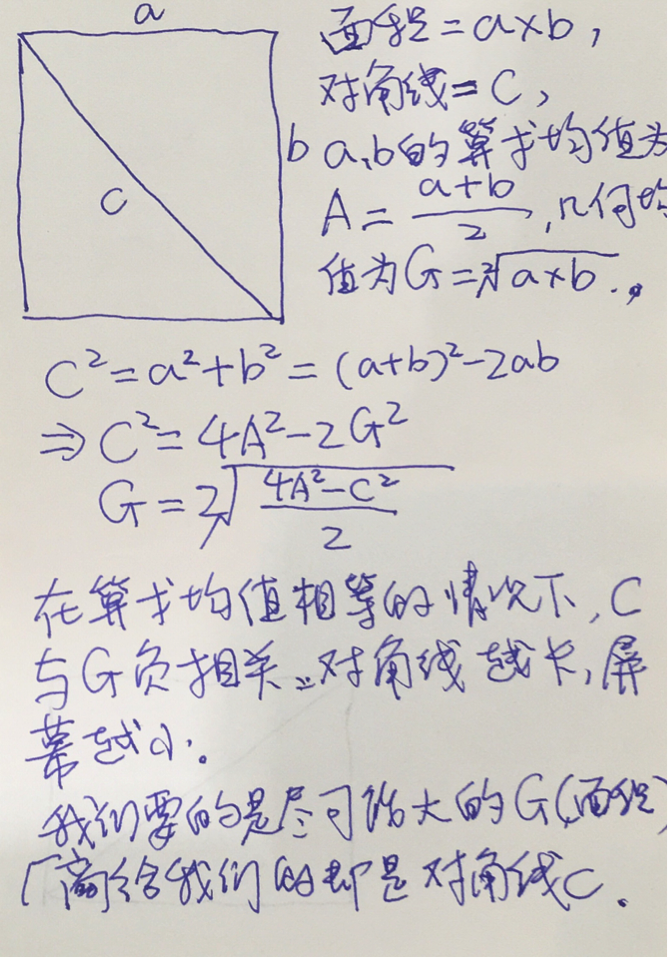 a
面积=a×b,
对角线=C,
b
a、b的算术均值为
c
A=\frac{a+b}{2},几何均
值为G=\sqrt[2]{a×b}.,
C²=a²+b²=(a+b)²-2ab
⇒C²=4A²-2G²
G=\sqrt[2]{\frac{4A²-C²}{2}}
在算术均值相等的情况下,C
与G负相关。对角线越长,屏
幕越小。
我们要的是尽可能大的G(面积)
厂商给我们的却是对角线C.